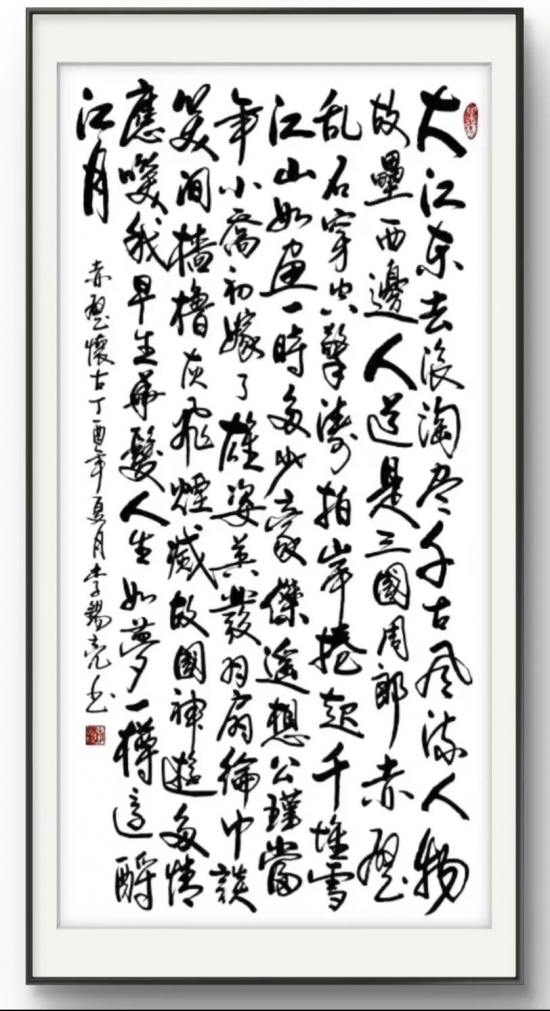 大江东去浪淘尽千古风流人物
故壘西邊人道是三國周郎赤壁
乱石穿空驚濤拍岸捲起千堆雪
江山如画一時多少豪傑遥想公瑾當
年小喬初嫁了雄姿英發羽扇綸巾談
笑间檣櫓灰飛煙滅故國神遊多情
應笑我早生華髮人生如夢一樽還酹
江月
赤壁懷古丁酉年夏月李錫亮书